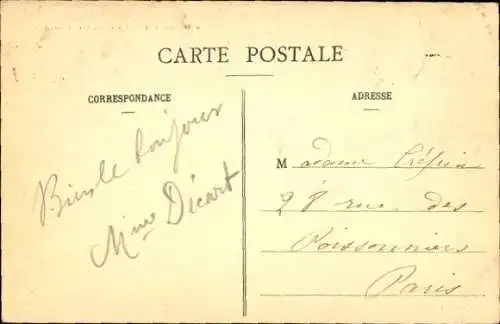 CARTE POSTALE
CORRESPONDANCE
Bien le bonjour
Mme Décart
ADRESSE
Madame Crépin
28 rue des
Poissonniers
Paris